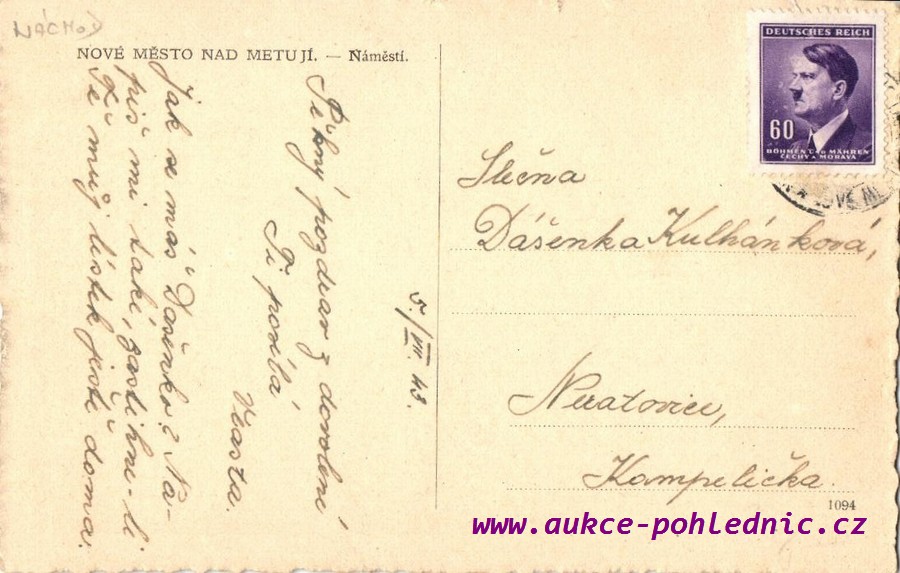 NÁCHOD
NOVÉ MĚSTO NAD METUJÍ. — Náměstí.
DEUTSCHES REICH
60
BÖHMEN U. MÄHREN
ČECHY A MORAVA
Pěkný pozdrav z dovolené
Ti posílá
Vlasta.
Jak se máš Dášenko? Na-
piš mi také, zastihne-li
Tě můj lístek ještě doma.
5./VII. 43.
Slečna
Dášenka Kulhánková,
Neratovice,
Kampelička.
1094
www.aukce-pohlednic.cz